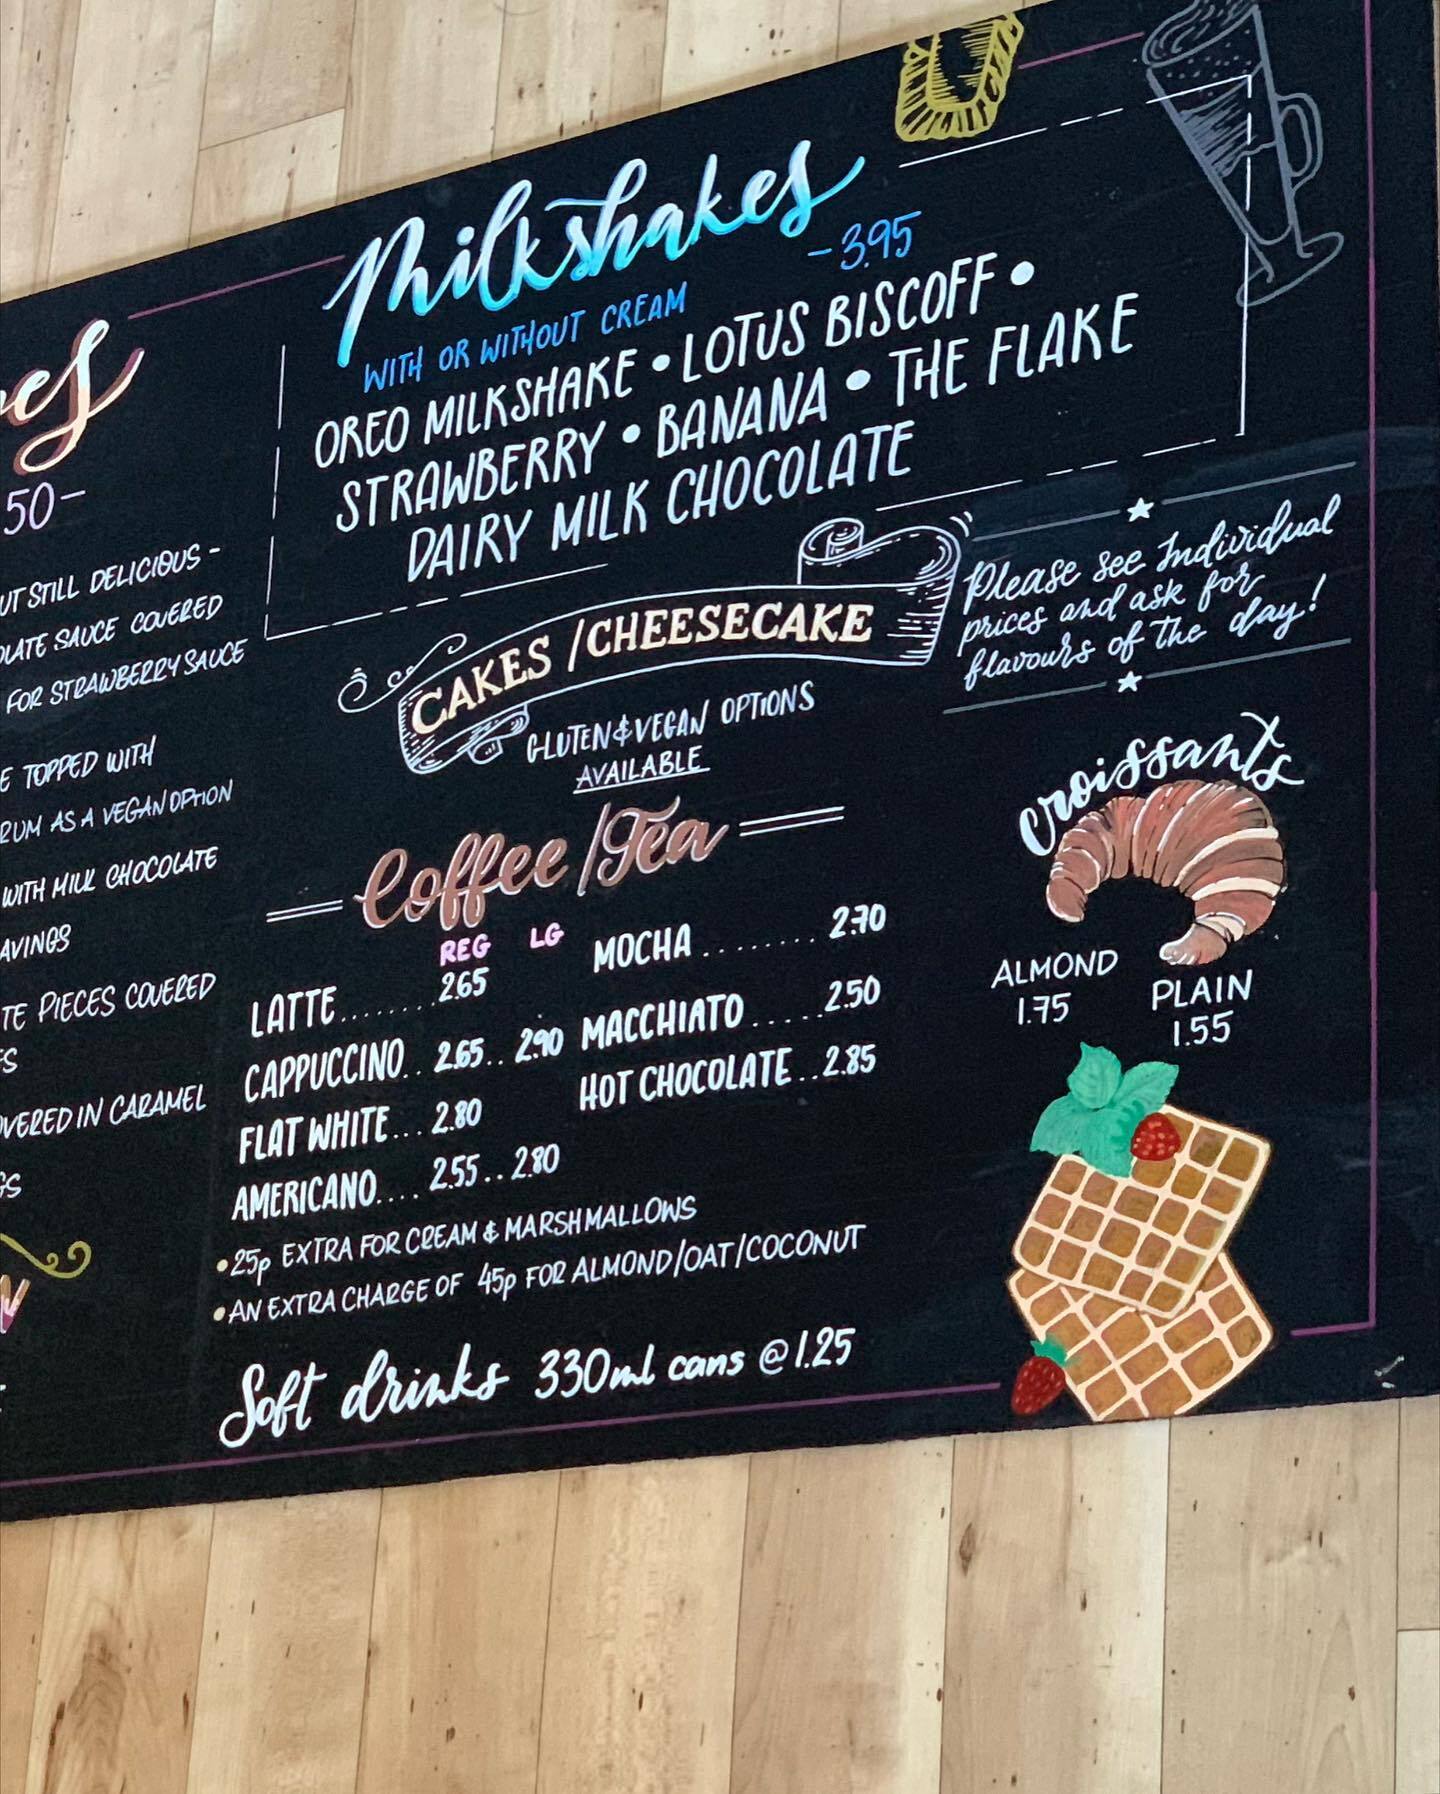 50-
UT STILL DELICIOUS -
LATE SAUCE COVERED
FOR STRAWBERRY SAUCE
TOPPED WITH
RUM AS A VEGAN OPTION
WITH MILK CHOCOLATE
AVINGS
TE PIECES COVERED
OVERED IN CARAMEL
GS
Milkshakes
- 3.95
WITH OR WITHOUT CREAM
OREO MILKSHAKE • LOTUS BISCOFF •
STRAWBERRY • BANANA • THE FLAKE
DAIRY MILK CHOCOLATE
CAKES / CHEESECAKE
GLUTEN & VEGAN OPTIONS
AVAILABLE
Please see Individual
prices and ask for
flavours of the day!
Coffee / Tea
REG LG
LATTE....... 2.65
CAPPUCCINO.. 2.65.. 2.90
FLAT WHITE... 2.80
AMERICANO.... 2.55.. 2.80
MOCHA ........ 2.70
MACCHIATO ..... 2.50
HOT CHOCOLATE .. 2.85
• 25p EXTRA FOR CREAM & MARSHMALLOWS
• AN EXTRA CHARGE OF 45p FOR ALMOND/OAT/COCONUT
Soft drinks 330ml cans @ 1.25
croissants
ALMOND
1.75
PLAIN
1.55